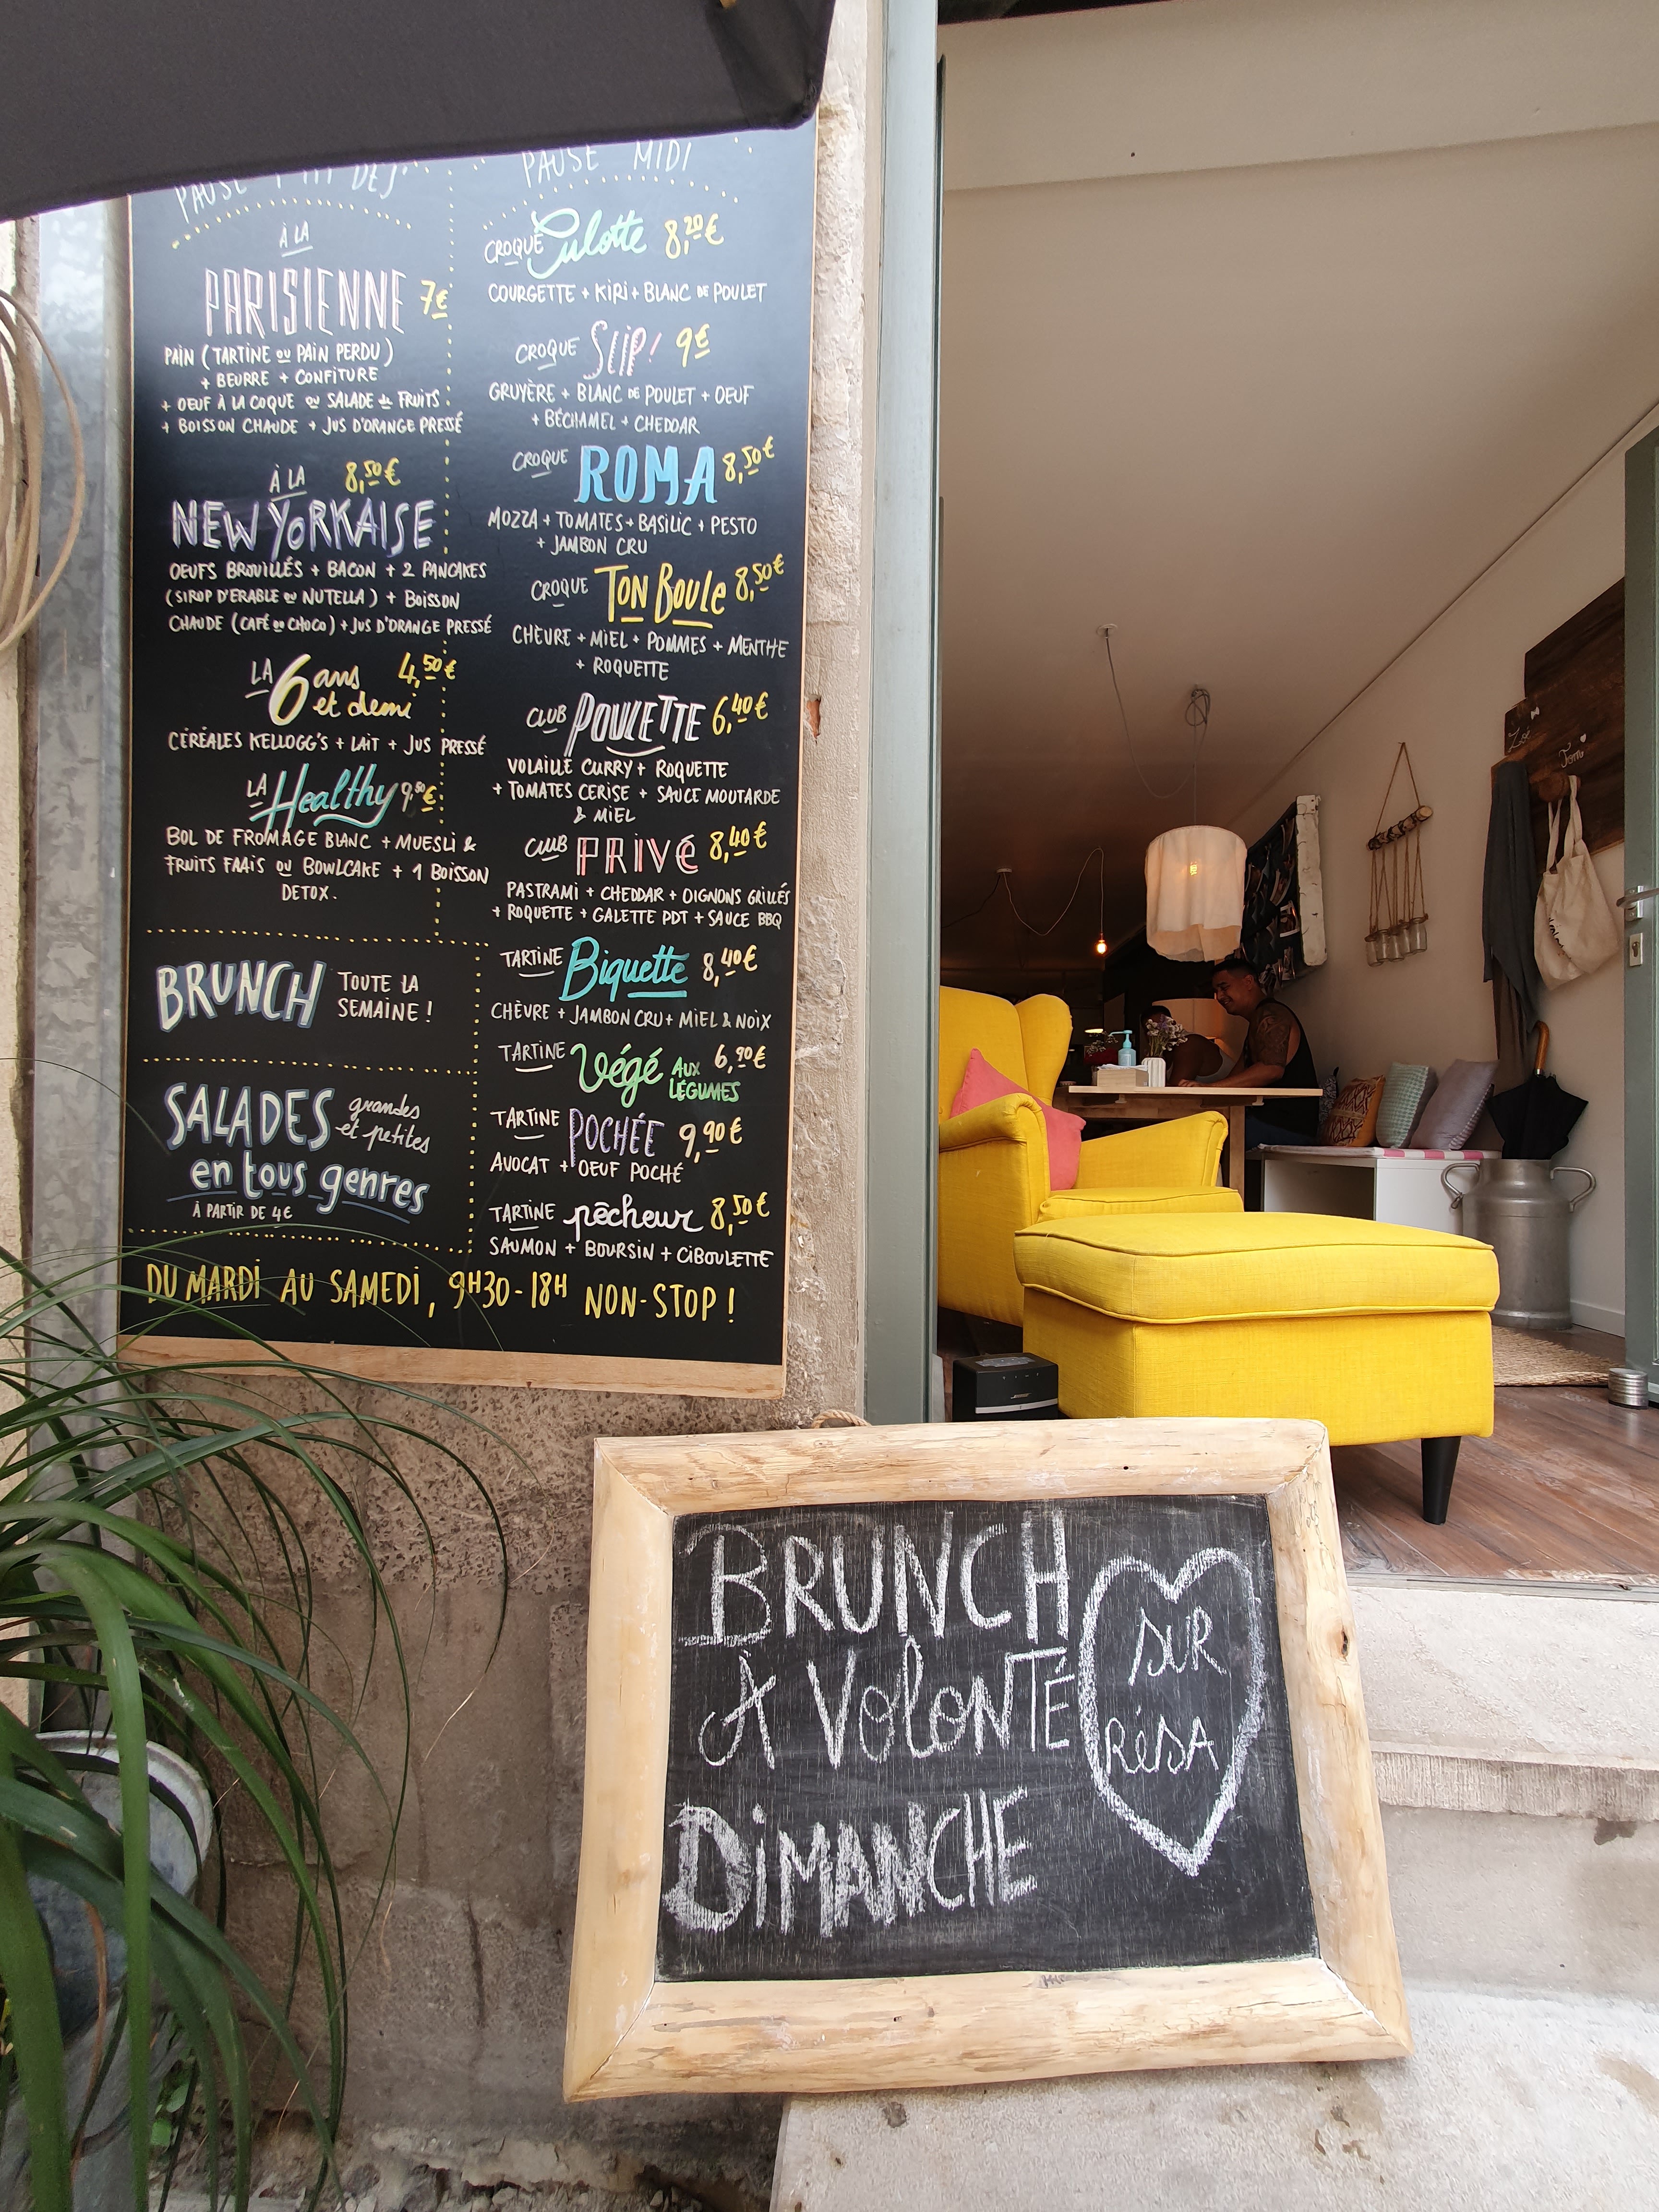 PAUSE P'TIT DEJ'
À LA
PARISIENNE 7€
PAIN (TARTINE OU PAIN PERDU)
+ BEURRE + CONFITURE
+ OEUF À LA COQUE OU SALADE de FRUITS
+ BOISSON CHAUDE + JUS D'ORANGE PRESSÉ
À LA 8,50€
NEW YORKAISE
OEUFS BROUILLÉS + BACON + 2 PANCAKES
(SIROP D'ERABLE OU NUTELLA) + BOISSON
CHAUDE (CAFÉ OU CHOCO) + JUS D'ORANGE PRESSÉ
LA 6 ans 4,50€
et demi
CÉRÉALES KELLOGG'S + LAIT + JUS PRESSÉ
LA Healthy 9,50€
BOL DE FROMAGE BLANC + MUESLI &
FRUITS FRAIS OU BOWLCAKE + 1 BOISSON
DETOX.
BRUNCH TOUTE LA
SEMAINE !
SALADES grandes
et petites
en tous genres
À PARTIR DE 4€
PAUSE MIDI
CROQUE Culotte 8,20€
COURGETTE + KIRI + BLANC DE POULET
CROQUE SLIP! 9€
GRUYÈRE + BLANC DE POULET + OEUF
+ BÉCHAMEL + CHEDDAR
CROQUE ROMA 8,50€
MOZZA + TOMATES + BASILIC + PESTO
+ JAMBON CRU
CROQUE TON BOULE 8,50€
CHÈVRE + MIEL + POMMES + MENTHE
+ ROQUETTE
CLUB POULETTE 6,40€
VOLAILLE CURRY + ROQUETTE
+ TOMATES CERISE + SAUCE MOUTARDE
& MIEL
CLUB PRIVÉ 8,40€
PASTRAMI + CHEDDAR + OIGNONS GRILLÉS
+ ROQUETTE + GALETTE PDT + SAUCE BBQ
TARTINE Biquette 8,40€
CHÈVRE + JAMBON CRU + MIEL & NOIX
TARTINE Végé AUX 6,90€
LÉGUMES
TARTINE POCHÉE 9,90€
AVOCAT + OEUF POCHÉ
TARTINE pêcheur 8,50€
SAUMON + BOURSIN + CIBOULETTE
DU MARDI AU SAMEDI, 9H30-18H NON-STOP !
Zoé
Tom
BRUNCH
À VOLONTÉ
DIMANCHE
SUR
RÉSA